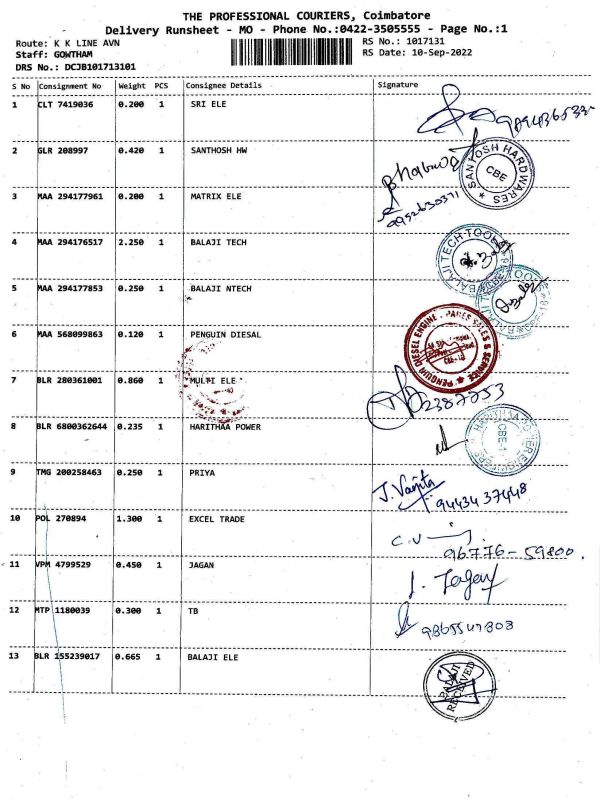 THE PROFESSIONAL COURIERS, Coimbatore
Delivery Runsheet - MO - Phone No.:0422-3505555 - Page No.:1
Route: K K LINE AVN
RS No.: 1017131
Staff: GOWTHAM
RS Date: 10-Sep-2022
DRS No.: DCJB101713101
S No Consignment No Weight PCS Consignee Details Signature
1 CLT 7419036 0.200 1 SRI ELE
2 GLR 208997 0.420 1 SANTHOSH HW
SANTOSH HARDWARES
CBE
3 MAA 294177961 0.200 1 MATRIX ELE
9952630371
4 MAA 294176517 2.250 1 BALAJI TECH
BALAJI TECH-TOOLS
5 MAA 294177853 0.250 1 BALAJI NTECH
6 MAA 568099863 0.120 1 PENGUIN DIESAL
PENGUIN DIESEL ENGINE PARTS SALES & SERVICE
7 BLR 280361001 0.860 1 MULTI ELE
2387253
8 BLR 6800362644 0.235 1 HARITHAA POWER
CBE-1
9 TMG 200258463 0.250 1 PRIYA
94434 37448
10 POL 270894 1.300 1 EXCEL TRADE
96776-59800.
11 VPM 4799529 0.450 1 JAGAN
J. Jagan
12 MTP 1180039 0.300 1 TB
13 BLR 155239017 0.665 1 BALAJI ELE
BALAJI
RECEIVED